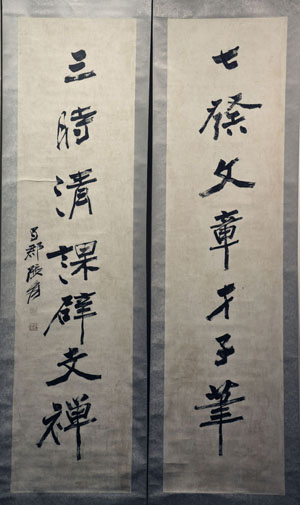 七發文章才子筆
三時清課辟支禪
蜀郡張爰